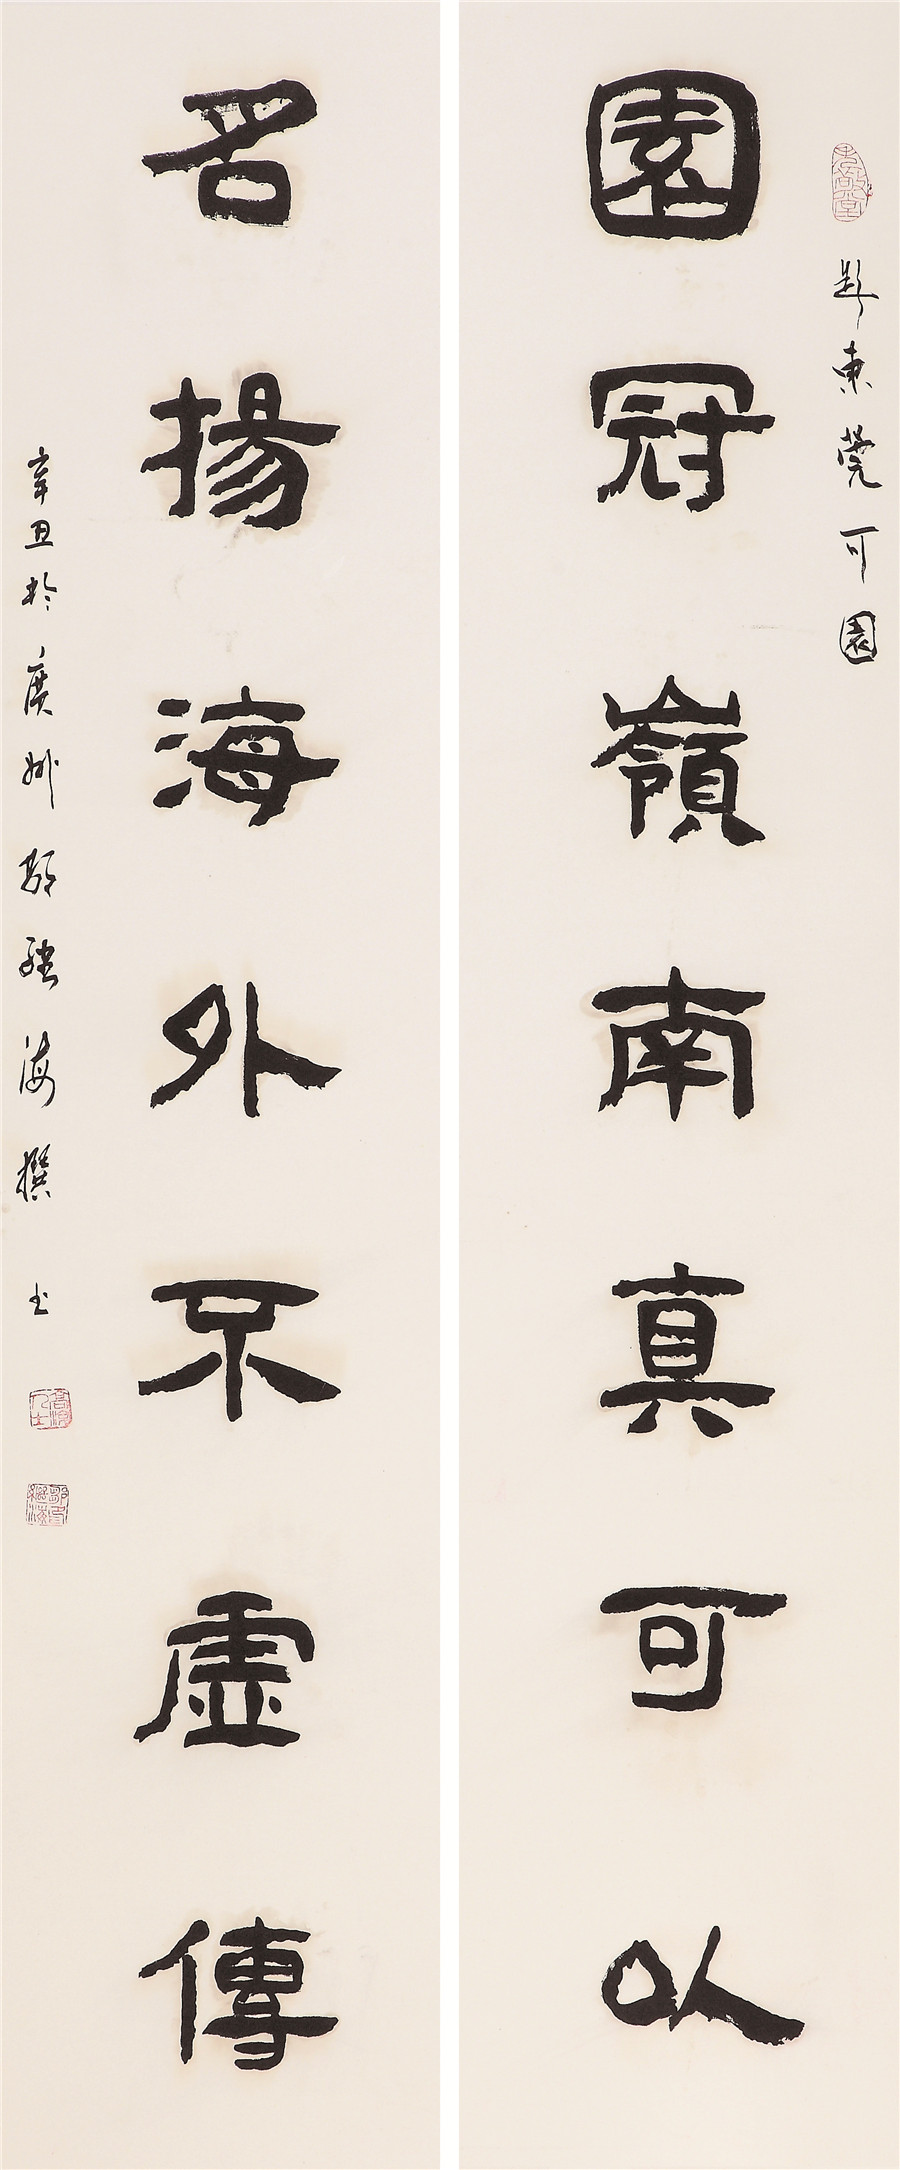 題東莞可園
園冠嶺南真可以
名揚海外不虛傳
辛丑於廣州鄒繼海撰書